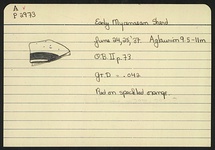 A
P 2973
Early Mycenaean Sherd
June 24, 25, '37. Agbunim 9.5-11m
O.B. II p. 73
Gr. D. - .042
Red on speckled orange.